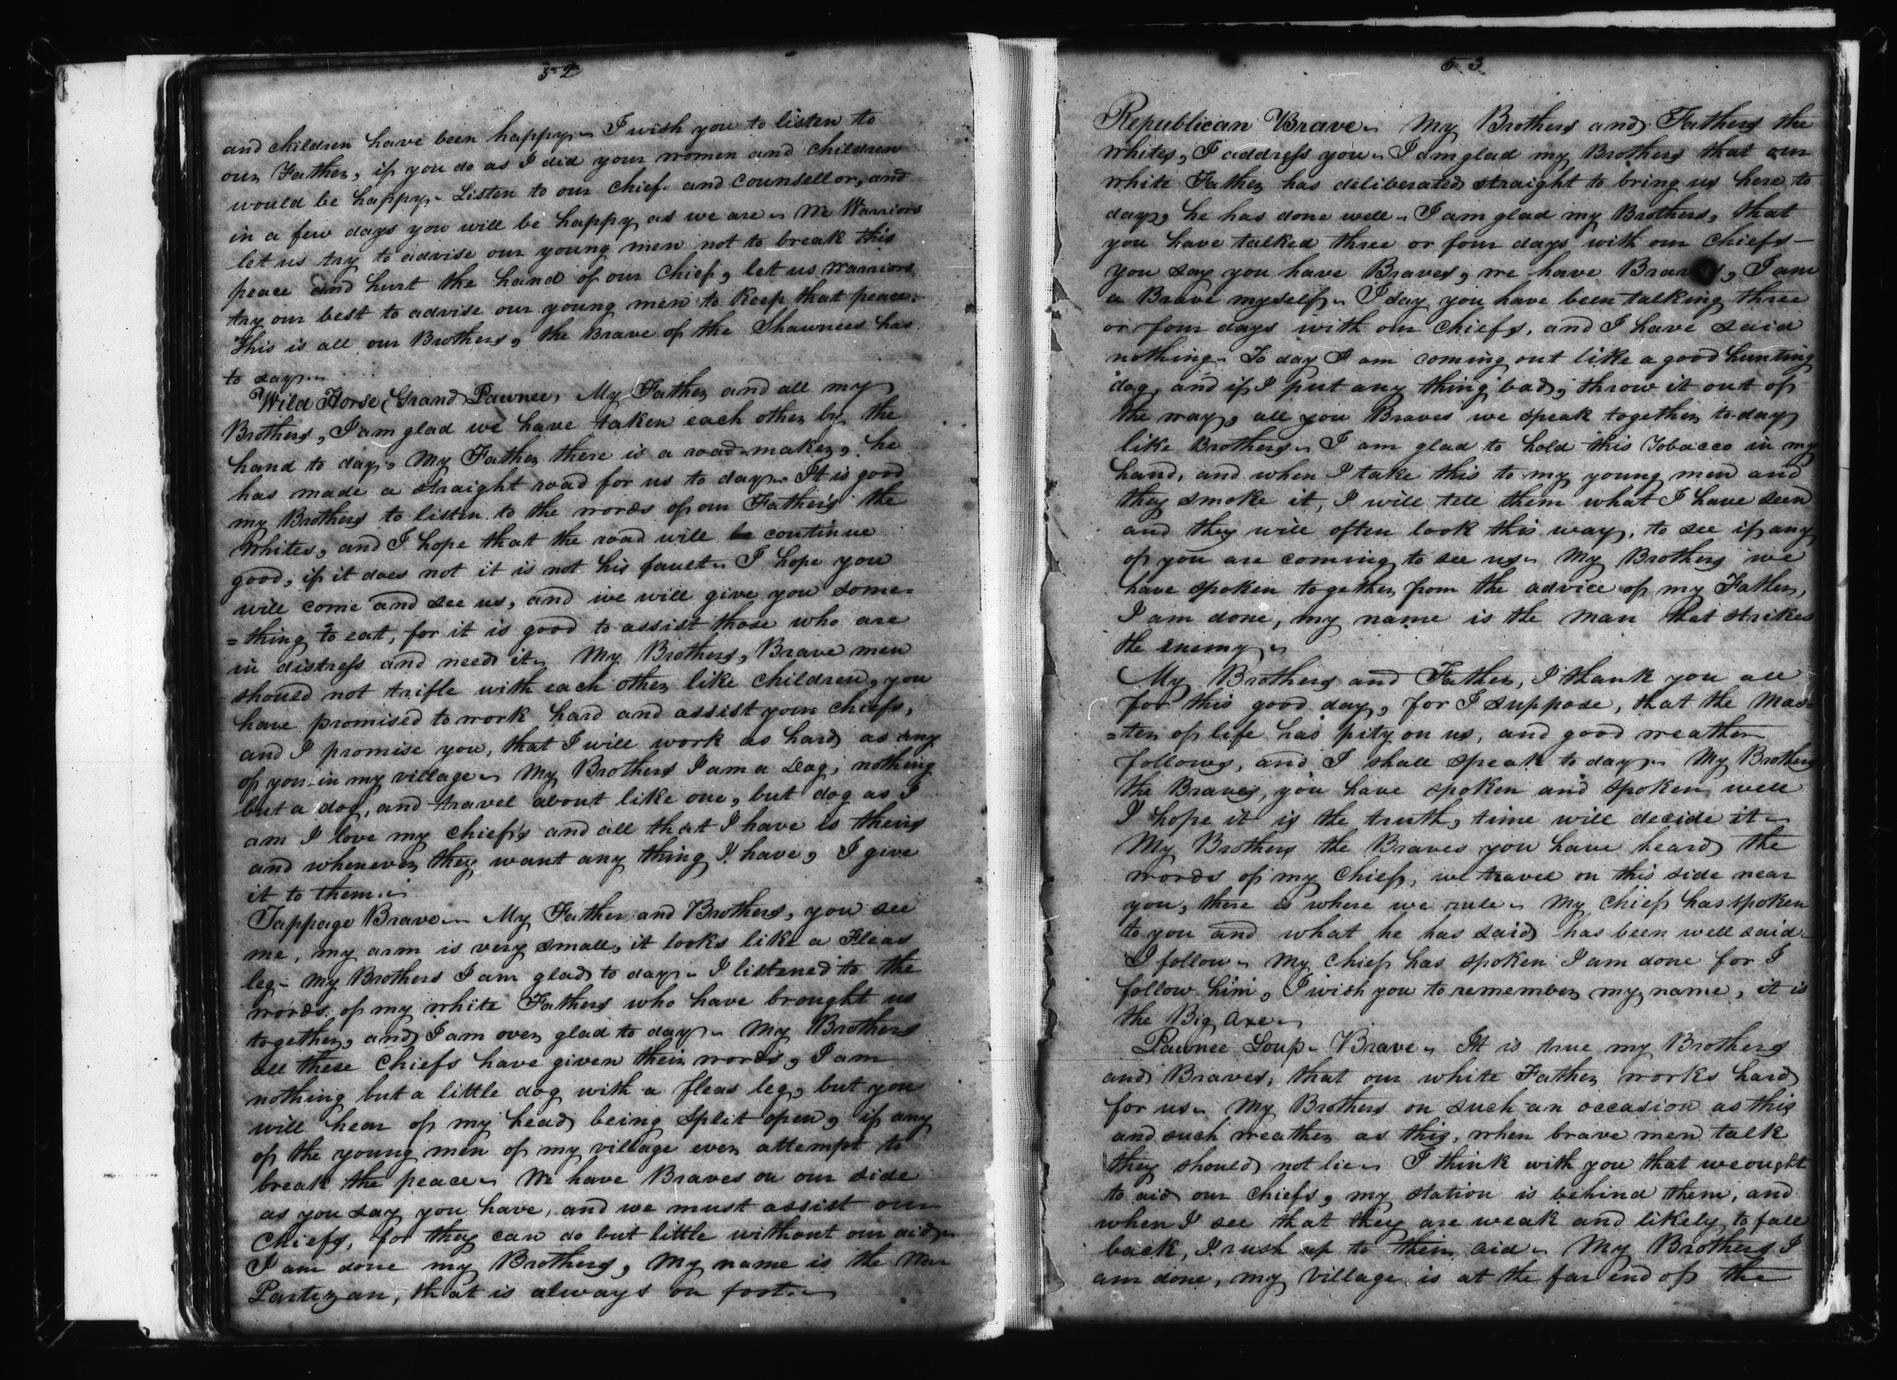 52
and children have been happy. I wish you to listen to
our Father, if you do as I did your women and children
would be happy. Listen to our Chief and counsellor, and
in a few days you will be happy as we are. We Warriors
let us try to advise our young men not to break this
peace and hurt the hand of our Chief, let us warriors
try our best to advise our young men to keep that peace.
This is all our Brothers, the Brave of the Shawnees has
to say.
Wild Horse (Grand Pawnee, My Father and all my
Brothers, I am glad we have taken each other by the
hand to day. My Father there is a road-maker, he
has made a straight road for us to day. It is good
my Brothers to listen to the words of our Father's the
Whites, and I hope that the road will be continue
good, if it does not it is not his fault. I hope you
will come and see us, and we will give you some=
=thing to eat, for it is good to assist those who are
in distress and need it. My Brothers, Brave men
should not trifle with each other like children, you
have promised to work hard and assist your chiefs,
and I promise you, that I will work as hard as any
of you in my village. My Brothers I am a Dog, nothing
but a dog, and travel about like one, but dog as I
am I love my chiefs and all that I have is theirs
and whenever they want any thing I have, I give
it to them.
Tappage Brave. My Father and Brothers, you see
me, my arm is very small, it looks like a Fleas
leg. My Brothers I am glad to day. I listened to the
words of my white Fathers who have brought us
together, and I am over glad to day. My Brothers
all these Chiefs have given their words, I am
nothing but a little dog with a fleas leg, but you
will hear of my head being split open, if any
of the young men of my village ever attempt to
break the peace. We have Braves on our side
as you say you have, and we must assist our
Chiefs, for they can do but little without our aid.
I am done my Brothers, My name is the War
Partizan, that is always on foot.
53
Republican Brave. My Brothers and Fathers the
whites, I address you. I am glad my Brothers that our
white Father has deliberated straight to bring us here to
day, he has done well. I am glad my Brothers, that
you have talked three or four days with our Chiefs—
you say you have Braves, we have Braves, I am
a Brave myself. I say you have been talking three
or four days with our Chiefs, and I have said
nothing. To day I am coming out like a good hunting
dog, and if I put any thing bad, throw it out of
the way, all you Braves we speak together to-day
like Brothers. I am glad to hold this Tobacco in my
hand, and when I take this to my young men and
they smoke it, I will tell them what I have seen
and they will often look this way, to see if any
of you are coming to see us. My Brothers we
have spoken together from the advice of my Father,
I am done, my name is the Man that strikes
the enemy.
My Brothers and Father, I thank you all
for this good day, for I suppose, that the Mas=
=ter of life has pity on us, and good weather
follows, and I shall speak to day. My Brothers
the Braves, you have spoken and spoken well
I hope it is the truth, time will decide it.
My Brothers the Braves you have heard the
words of my Chief, we travel on this side near
you, there is where we rule. My Chief has spoken
to you and what he has said has been well said.
I follow. My chief has spoken I am done for I
follow him, I wish you to remember my name, it is
the Big Axe.
Pawnee Loup. Brave. It is true my Brothers
and Braves, that our white Father works hard
for us. My Brothers on such an occasion as this
and such weather as this, when brave men talk
they should not lie. I think with you that we ought
to aid our chiefs, my station is behind them, and
when I see that they are weak and likely to fall
back, I rush up to their aid. My Brothers I
am done, my village is at the far end of the